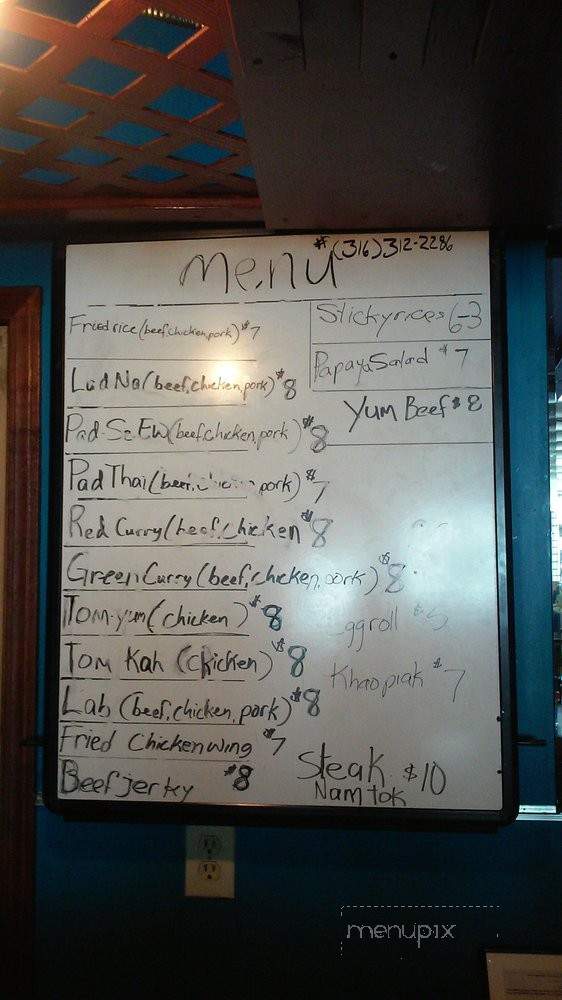 Menu
#(316)312-2286
Fried rice (beef, chicken, pork) $7
Lad Na (beef, chicken, pork) $8
Pad-Se Ew (beef, chicken, pork) $8
Pad Thai (beef, pork) $7
Red Curry (beef, chicken $8
Green Curry (beef, chicken, pork) $8
Tom-yum (chicken) $8
Tom Kah (chicken) $8
Lab (beef, chicken, pork) $8
Fried Chicken wing $7
Beef jerky $8
Sticky rices
Papaya Salad $7
Yum Beef $8
ggroll $5
Khaopiak $7
Steak $10
Nam tok
menupix